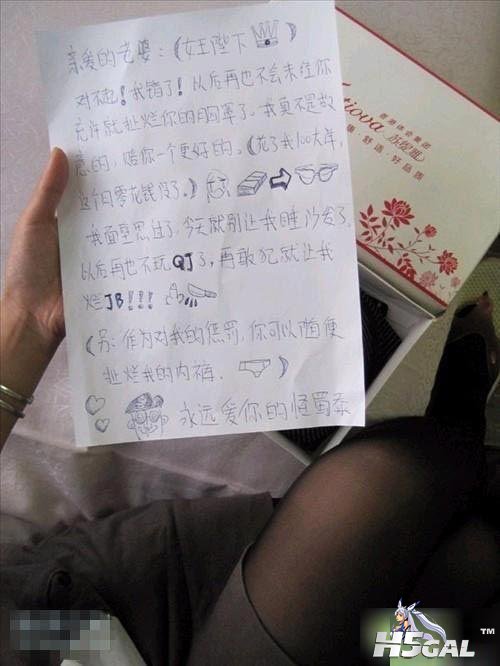 亲爱的老婆：（女王陛下 ）
对不起！我错了！以后再也不会未经你
允许就扯烂你的胸罩了。我真不是故
意的，赔你一个更好的。（花了我100大洋，
这个月零花钱没了。）
我面壁思过了，今天就别让我睡沙发了，
以后再也不玩QJ了，再敢犯就让我
烂JB!!!
（另：作为对我的惩罚，你可以随便
扯烂我的内裤。 ）
永远爱你的怪蜀黍
tiova
康·舒适·好品质
H5GAL TM